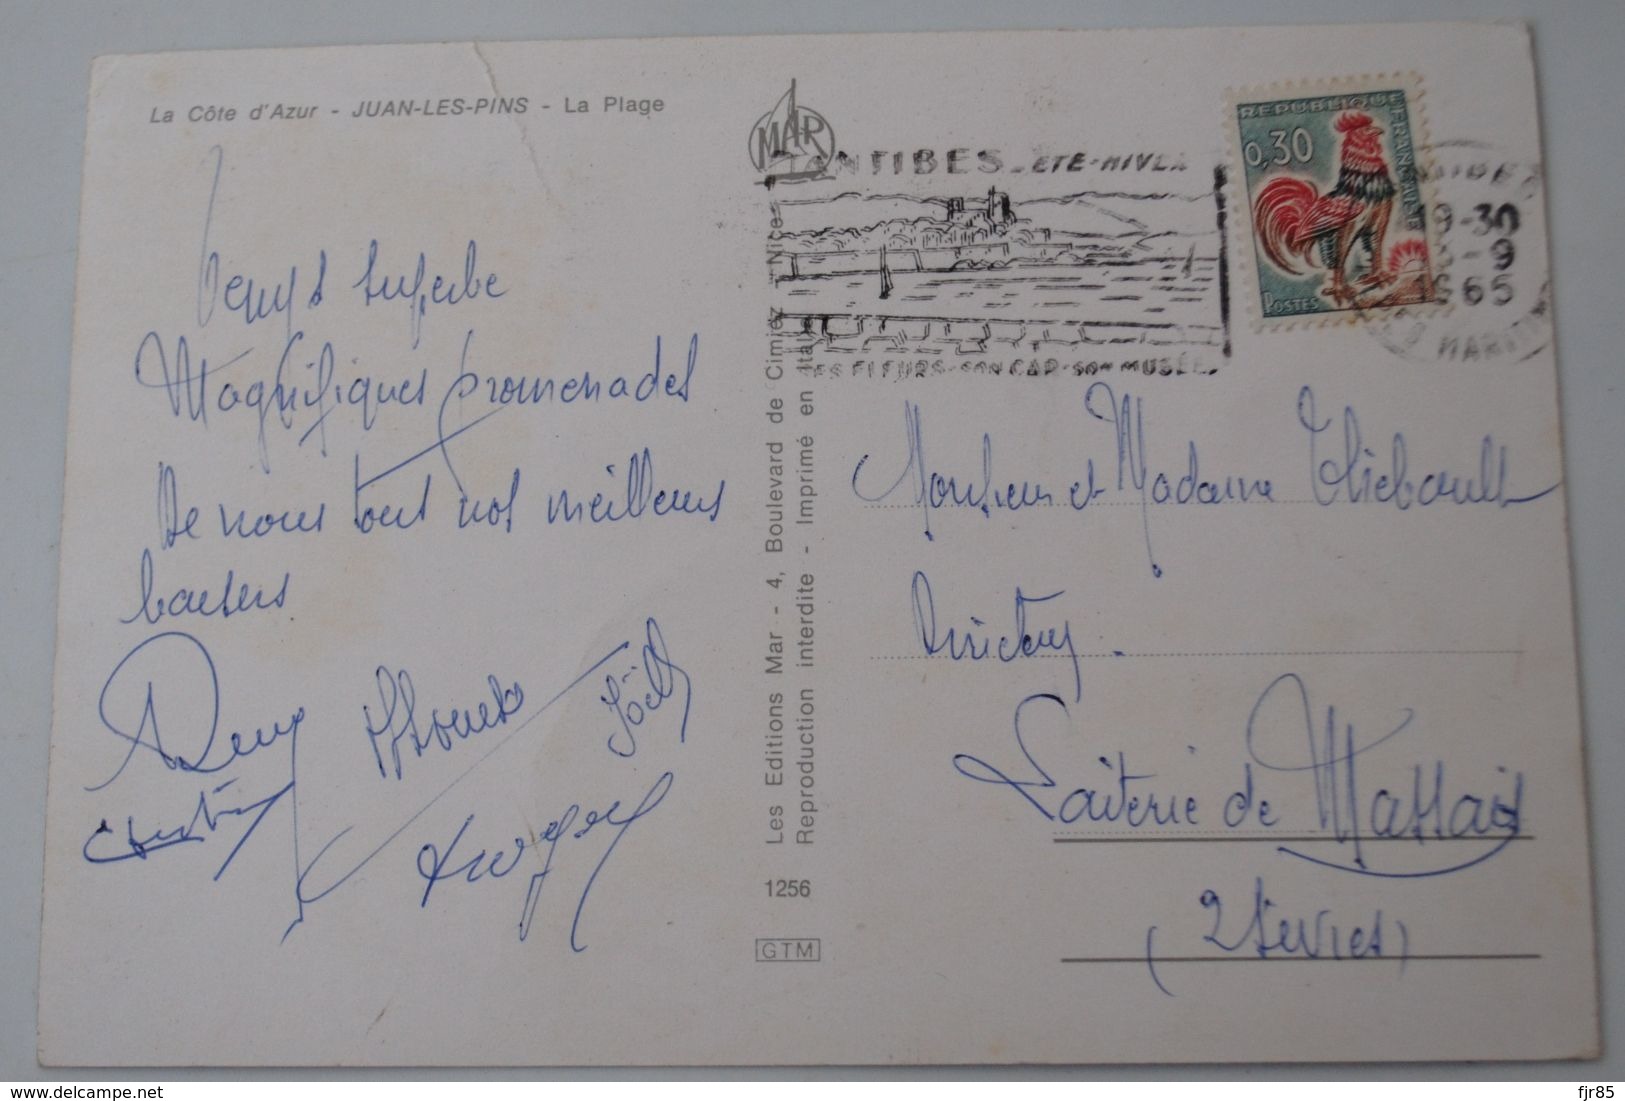 La Côte d'Azur - JUAN-LES-PINS - La Plage
Temps superbe
Magnifiques promenades
De nous tous nos meilleurs
baisers
Joël
MAR
Les Editions Mar - 4, Boulevard de Cimiez - Nice
Reproduction interdite - Imprimé en Italie
1256
GTM
ANTIBES - ETE-HIVER
LES FLEURS - SON CAP - SON MUSÉE
REPUBLIQUE FRANCAISE
0,30
POSTES
9-30
-9
1965
MARITIMES
Monsieur et Madame Thiebault
Directeur.
Laiterie de Massais
(2 Sèvres)
delcampe.net
fjr85